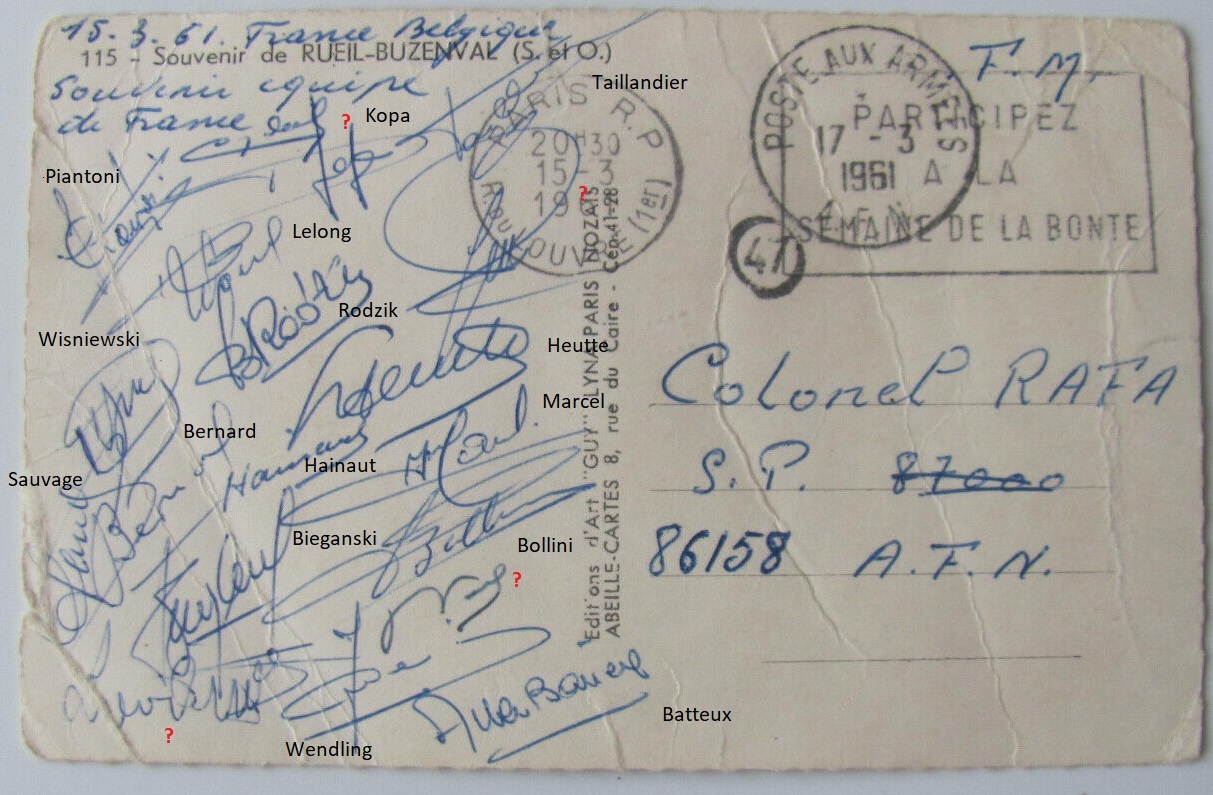 15.3.61. France Belgique
115 - Souvenir de RUEIL-BUZENVAL (S. et O.)
Souvenir équipe
de France
Taillandier
?
Kopa
Piantoni
Lelong
?
Wisniewski
Rodzik
Heutte
Marcel
Bernard
Hainaut
Sauvage
Bieganski
Bollini
?
?
Wendling
Batteux
PARIS R.P
20H30
15-3
19
R. DU LOUVRE (1er)
Editions d'Art "GUY" LYNA-PARIS NOZAIS
ABEILLE-CARTES 8, rue du Caire - Cen 41-28
POSTE AUX ARMÉES
17 - 3
1961
A.F.N
F.M.
PARTICIPEZ
A LA
SEMAINE DE LA BONTE
47
Colonel RAFA
S.P. 87000
86158 A.F.N.